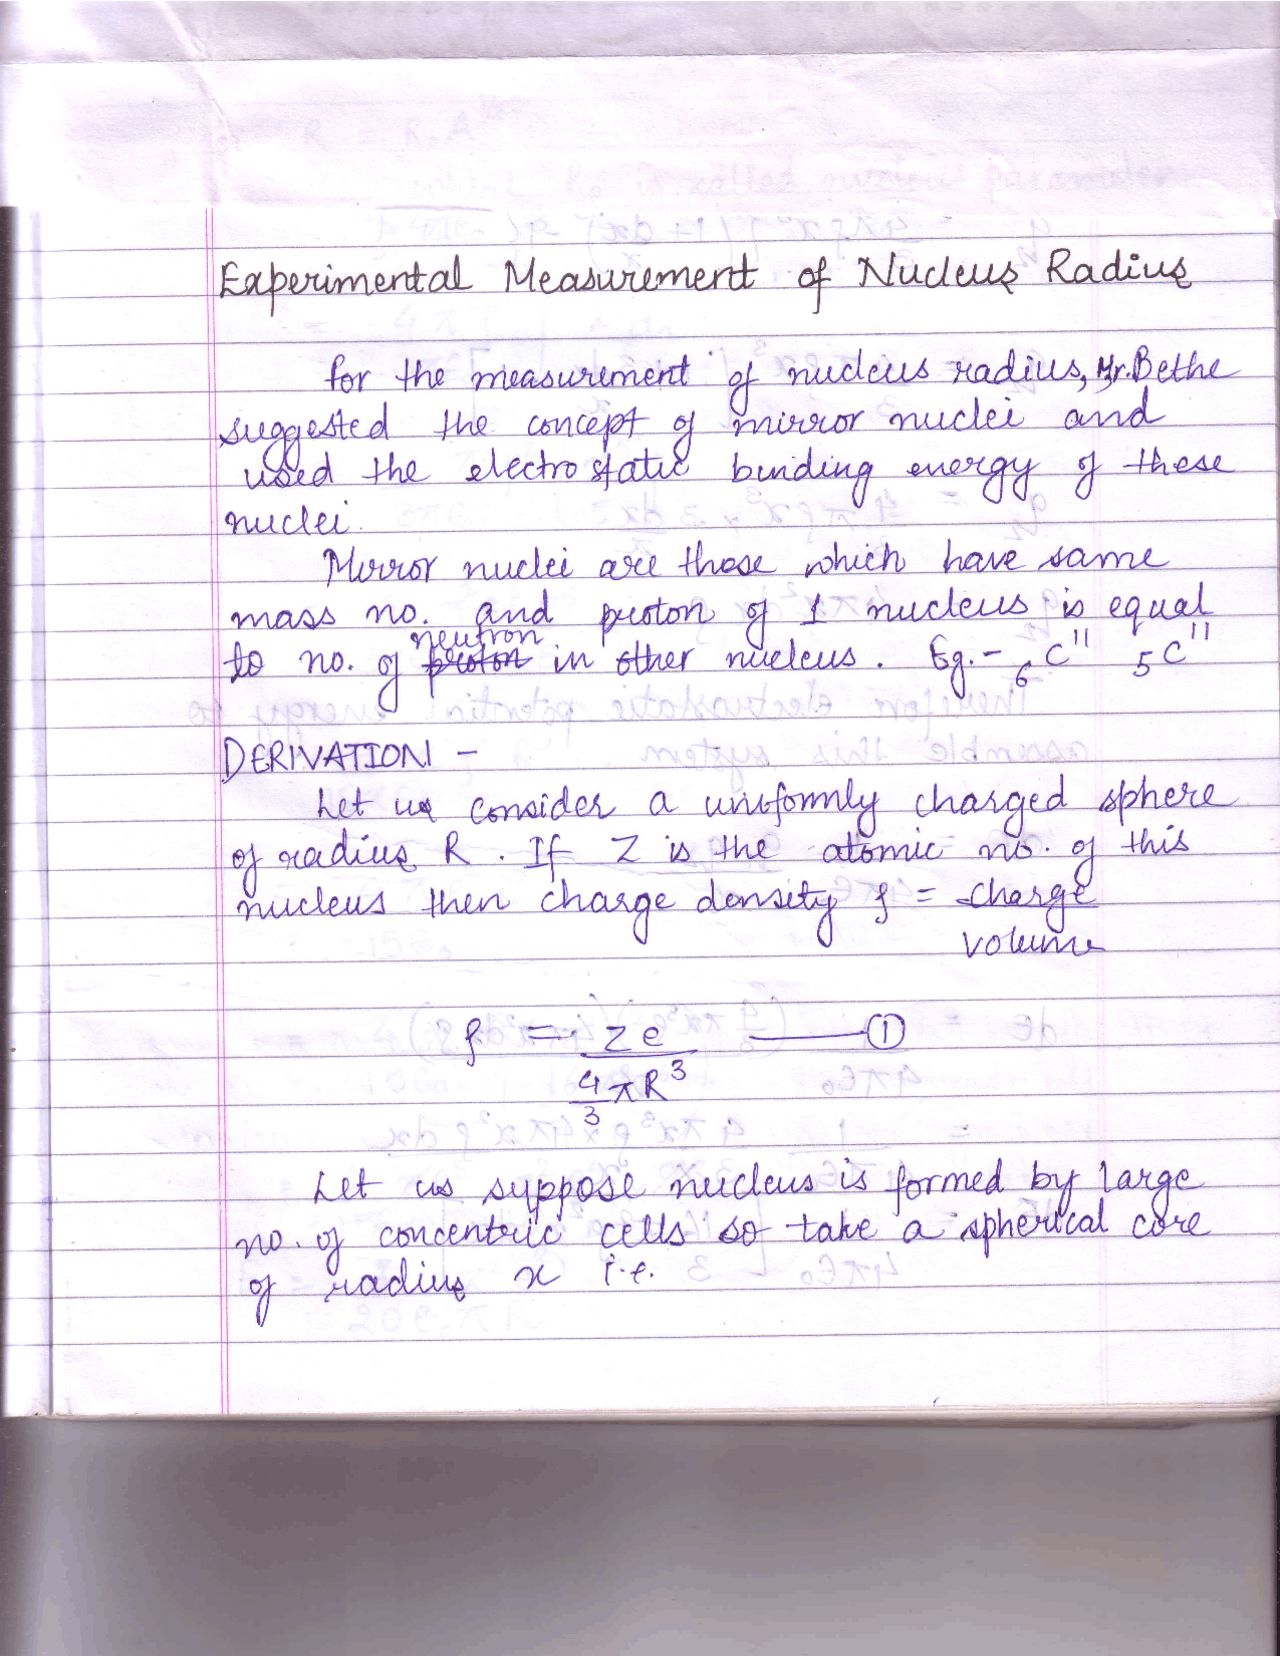 Experimental Measurement of Nucleus Radius
for the measurement of nucleus radius, Mr. Bethe
suggested the concept of mirror nuclei and
used the electrostatic binding energy of these
nuclei.
Mirror nuclei are those which have same
mass no. and proton of 1 nucleus is equal
neutron
to no. of proton in other nucleus. Eg. - ₆C¹¹ ₅C¹¹
DERIVATION -
Let us consider a uniformly charged sphere
of radius R. If Z is the atomic no. of this
nucleus then charge density ρ = charge
volume
ρ = Ze ——— ①
4/3 πR³
Let us suppose nucleus is formed by large
no. of concentric cells so take a spherical core
of radius x i.e.